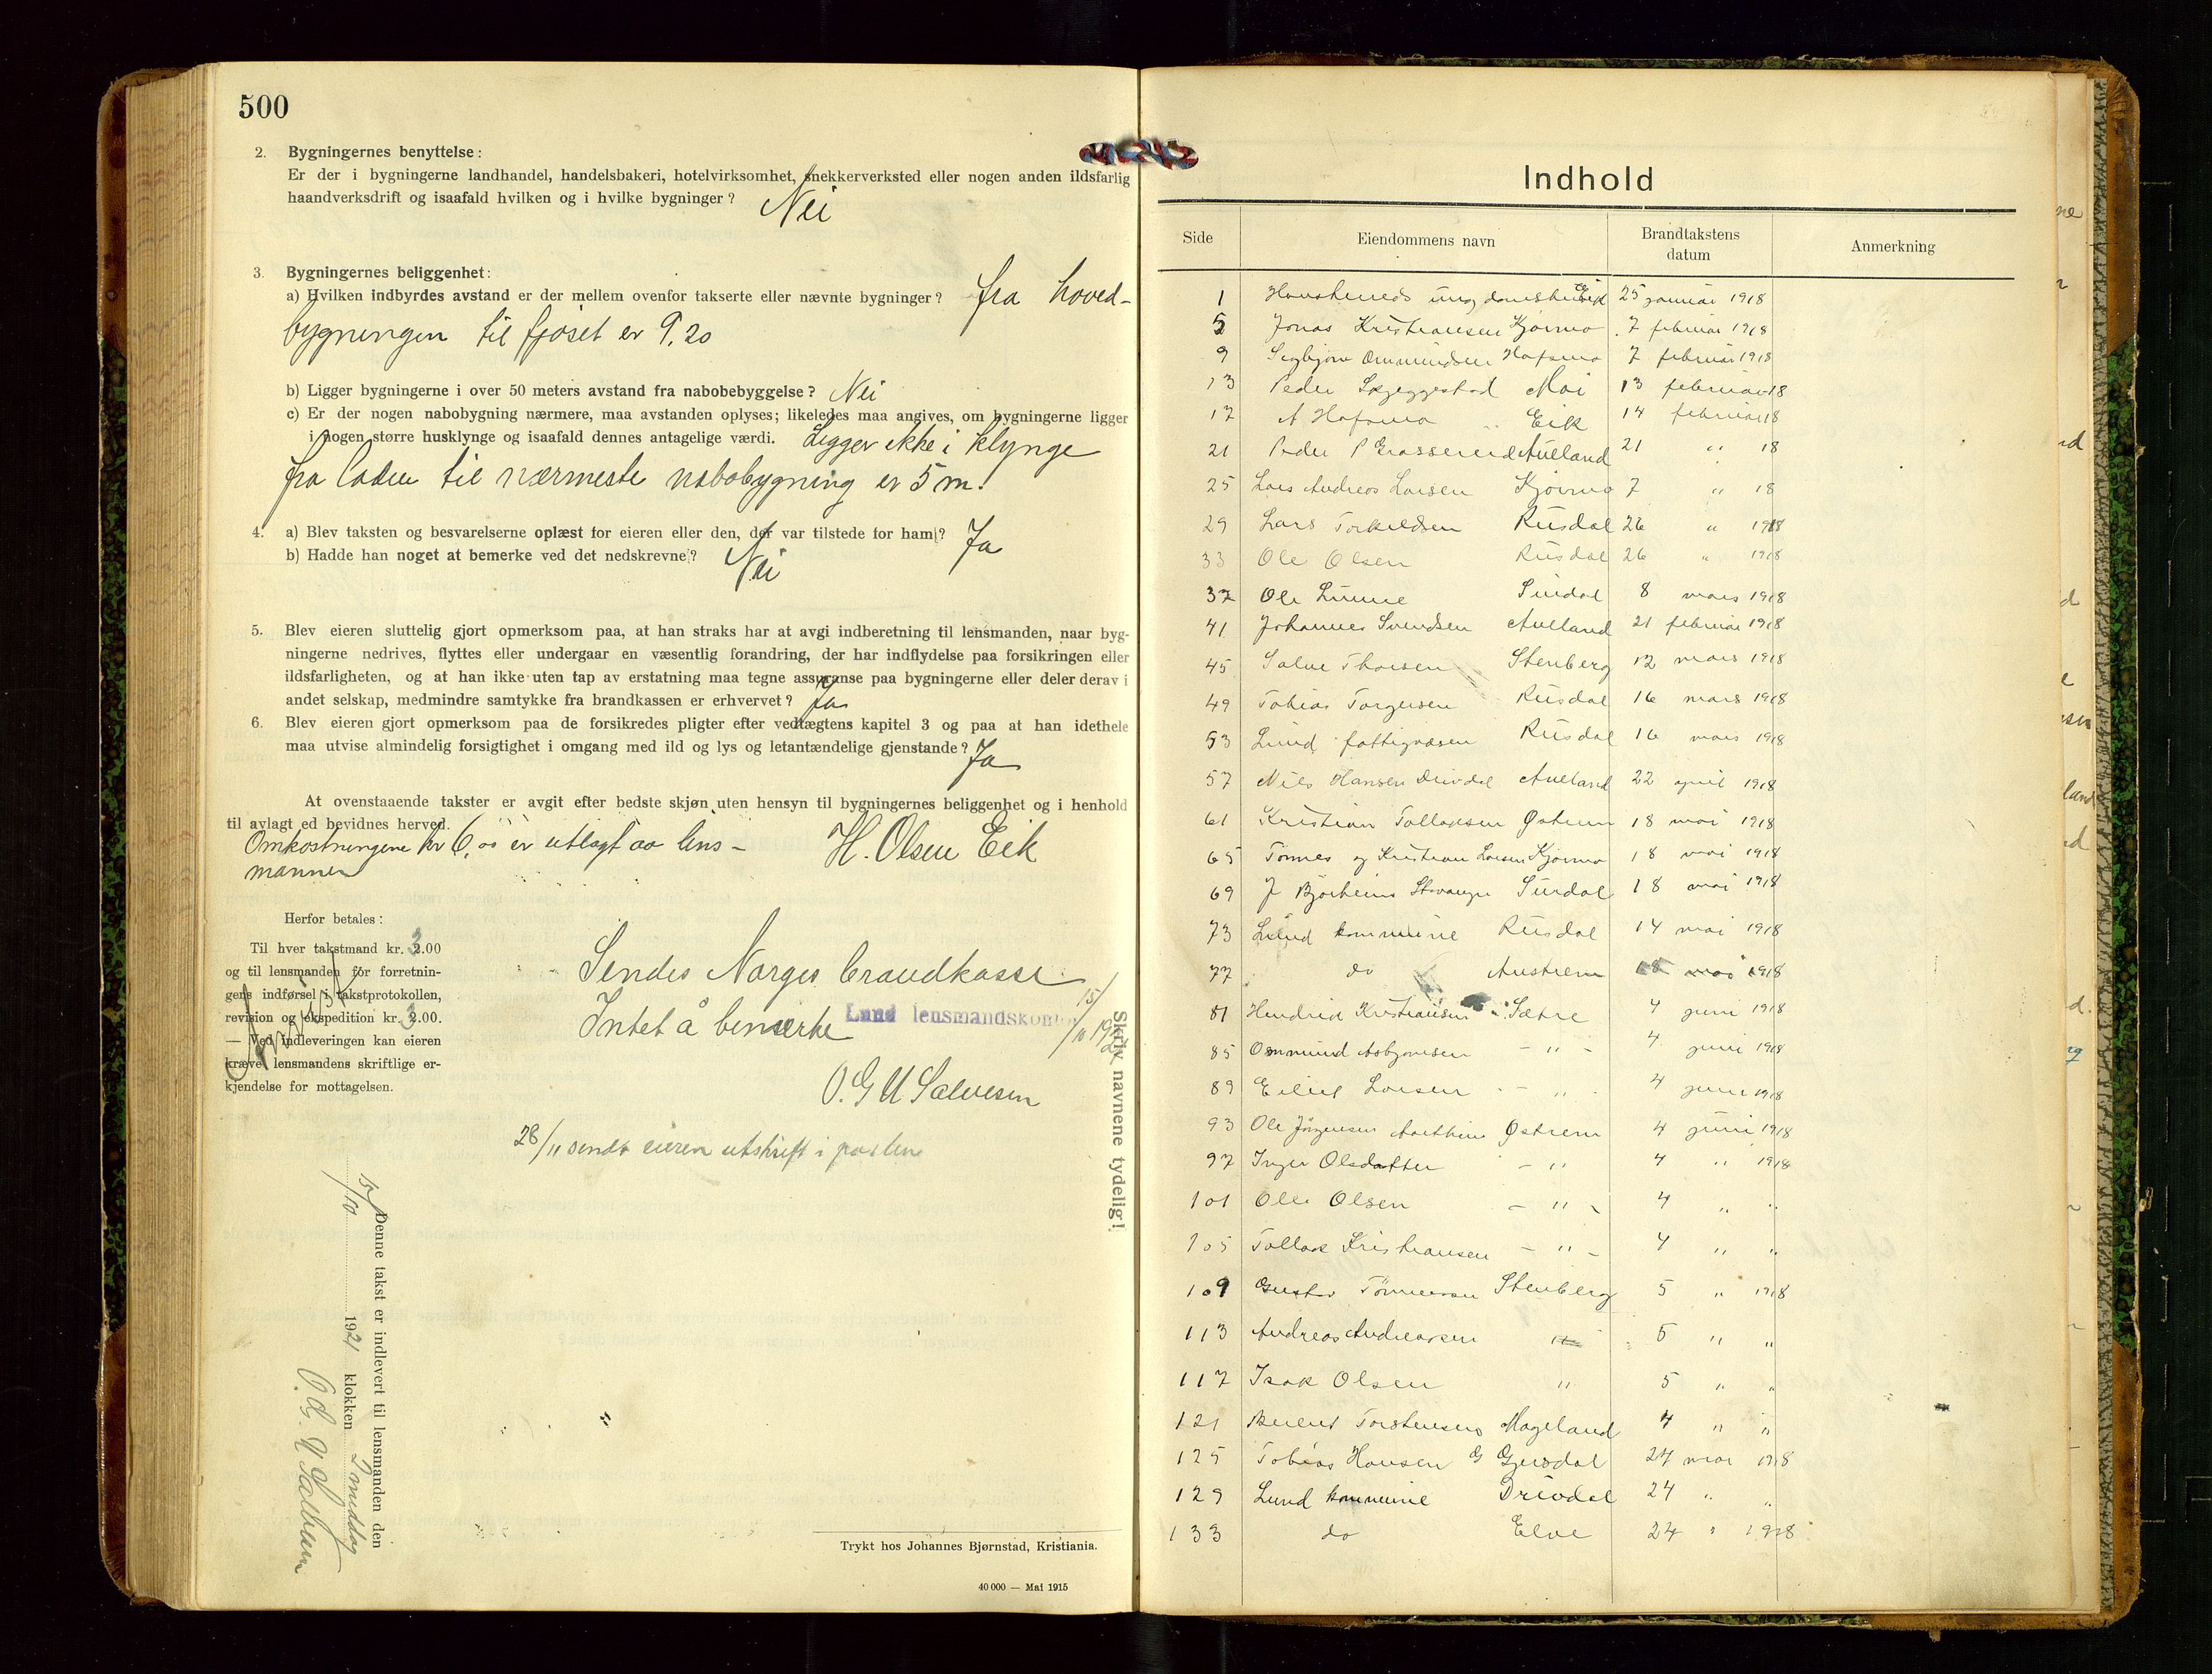 500
2. Bygningernes benyttelse:
Er der i bygningerne landhandel, handelsbakeri, hotelvirksomhet, snekkerverksted eller nogen anden ildsfarlig
haandverksdrift og isaafald hvilken og i hvilke bygninger? Nei
3. Bygningernes beliggenhet:
a) Hvilken indbyrdes avstand er der mellem ovenfor takserte eller nævnte bygninger? fra hoved-
bygningen til fjöset er 9,20
b) Ligger bygningerne i over 50 meters avstand fra nabobebyggelse? Nei
c) Er der nogen nabobygning nærmere, maa avstanden oplyses; likeledes maa angives, om bygningerne ligger
i nogen større husklynge og isaafald dennes antagelige værdi. Ligger ikke i klynge
fra laden til nærmeste nabobygning er 5 m.
4. a) Blev taksten og besvarelserne oplæst for eieren eller den, der var tilstede for ham? Ja
b) Hadde han noget at bemerke ved det nedskrevne? Nei
5. Blev eieren sluttelig gjort opmerksom paa, at han straks har at avgi indberetning til lensmanden, naar byg-
ningerne nedrives, flyttes eller undergaar en væsentlig forandring, der har indflydelse paa forsikringen eller
ildsfarligheten, og at han ikke uten tap av erstatning maa tegne assuranse paa bygningerne eller deler derav i
andet selskap, medmindre samtykke fra brandkassen er erhvervet? Ja
6. Blev eieren gjort opmerksom paa de forsikredes pligter efter vedtægtens kapitel 3 og paa at han idethele
maa utvise almindelig forsigtighet i omgang med ild og lys og letantændelige gjenstande? Ja
At ovenstaaende takster er avgit efter bedste skjøn uten hensyn til bygningernes beliggenhet og i henhold
til avlagt ed bevidnes herved.
Omkostningene kr 6,00 er utlagt av lens-
mannen
H. Olsen Eik
Herfor betales:
Til hver takstmand kr. 2.00
og til lensmanden for forretnin-
gens indførsel i takstprotokollen,
revision og ekspedition kr. 2.00.
— Ved indleveringen kan eieren
kræve lensmandens skriftlige er-
kjendelse for mottagelsen.
Sendes Norges brandkasse
Intet å bemerke
Lund lensmandskontor 15/10 1921
O. G. U Salvesen
28/11 sendt eieren utskrift i posten
Skriv navnene tydelig!
Denne takst er indlevert til lensmanden den
15/10 1921 klokken middag
O. G. U Salvesen
Trykt hos Johannes Bjørnstad, Kristiania.
40 000 — Mai 1915
Indhold
Side Eiendommens navn Brandtakstens datum Anmerkning
1 Eik 25 januar 1918
5 Jonas Kristiansen Kjörmo 7 februar 1918
9 Segbjörn Ommundsen Hafsmo 7 februar 1918
13 Peder Skjeggestad Moi 13 februar 18
17 A Hafsmo " Eik 14 februar 18
21 Peder P Grosserud Aulland 21 " 18
25 Lars Andreas Larsen Kjörmo 7 " 18
29 Lars Torkildsen Rusdal 26 " 1918
33 Ole Olsen Rusdal 26 " 1918
37 Ole Surdal 8 mars 1918
41 Johannes Svendsen Aulland 21 februar 1918
45 Salve Thorsen Stenberg 12 mars 1918
49 Tobias Torgersen Rusdal 16 mars 1918
53 Lund fattigvæsen Rusdal 16 mars 1918
57 Nils Hansen Drivdal Aulland 22 april 1918
61 Kristian Tollaksen Østrem 18 mai 1918
65 Tönnes og Kristian Larsen Kjörmo 18 mai 1918
69 J Bjorheim Stavanger Surdal 18 mai 1918
73 Lund kommune Rusdal 14 mai 1918
77 do Austrem 18 mai 1918
81 Hendrik Kristiansen Sætre 4 juni 1918
85 Ommund Asbjornsen - " - 4 juni 1918
89 Eilert Larsen - " 4 juni 1918
93 Ole Jörgensen Østrem 4 juni 1918
97 Inger Olsdatter - " 4 " 1918
101 Olle Olsen - " - 4 " "
105 Tollak Kristiansen - " - 4 " "
109 Gustav Tönnessen Stenberg 5 " 1918
113 Andreas Andreassen " 5 " "
117 Isak Olsen " 5 " "
121 Berent Torstensen Mageland 4 " "
125 Tobias Hansen G Gjerdal 24 mai 1918
129 Lund kommune Drivdal 24 " "
133 do Elve 24 " 1918